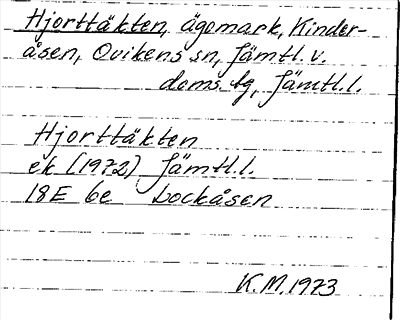 Hjorttäkten, ägomark, Kinder-
åsen, Ovikens sn, Jämtl. v.
doms. tg, Jämtl. l.
Hjorttäkten
ek (1972) Jämtl. l.
18E 6e Lockåsen
K.M. 1973